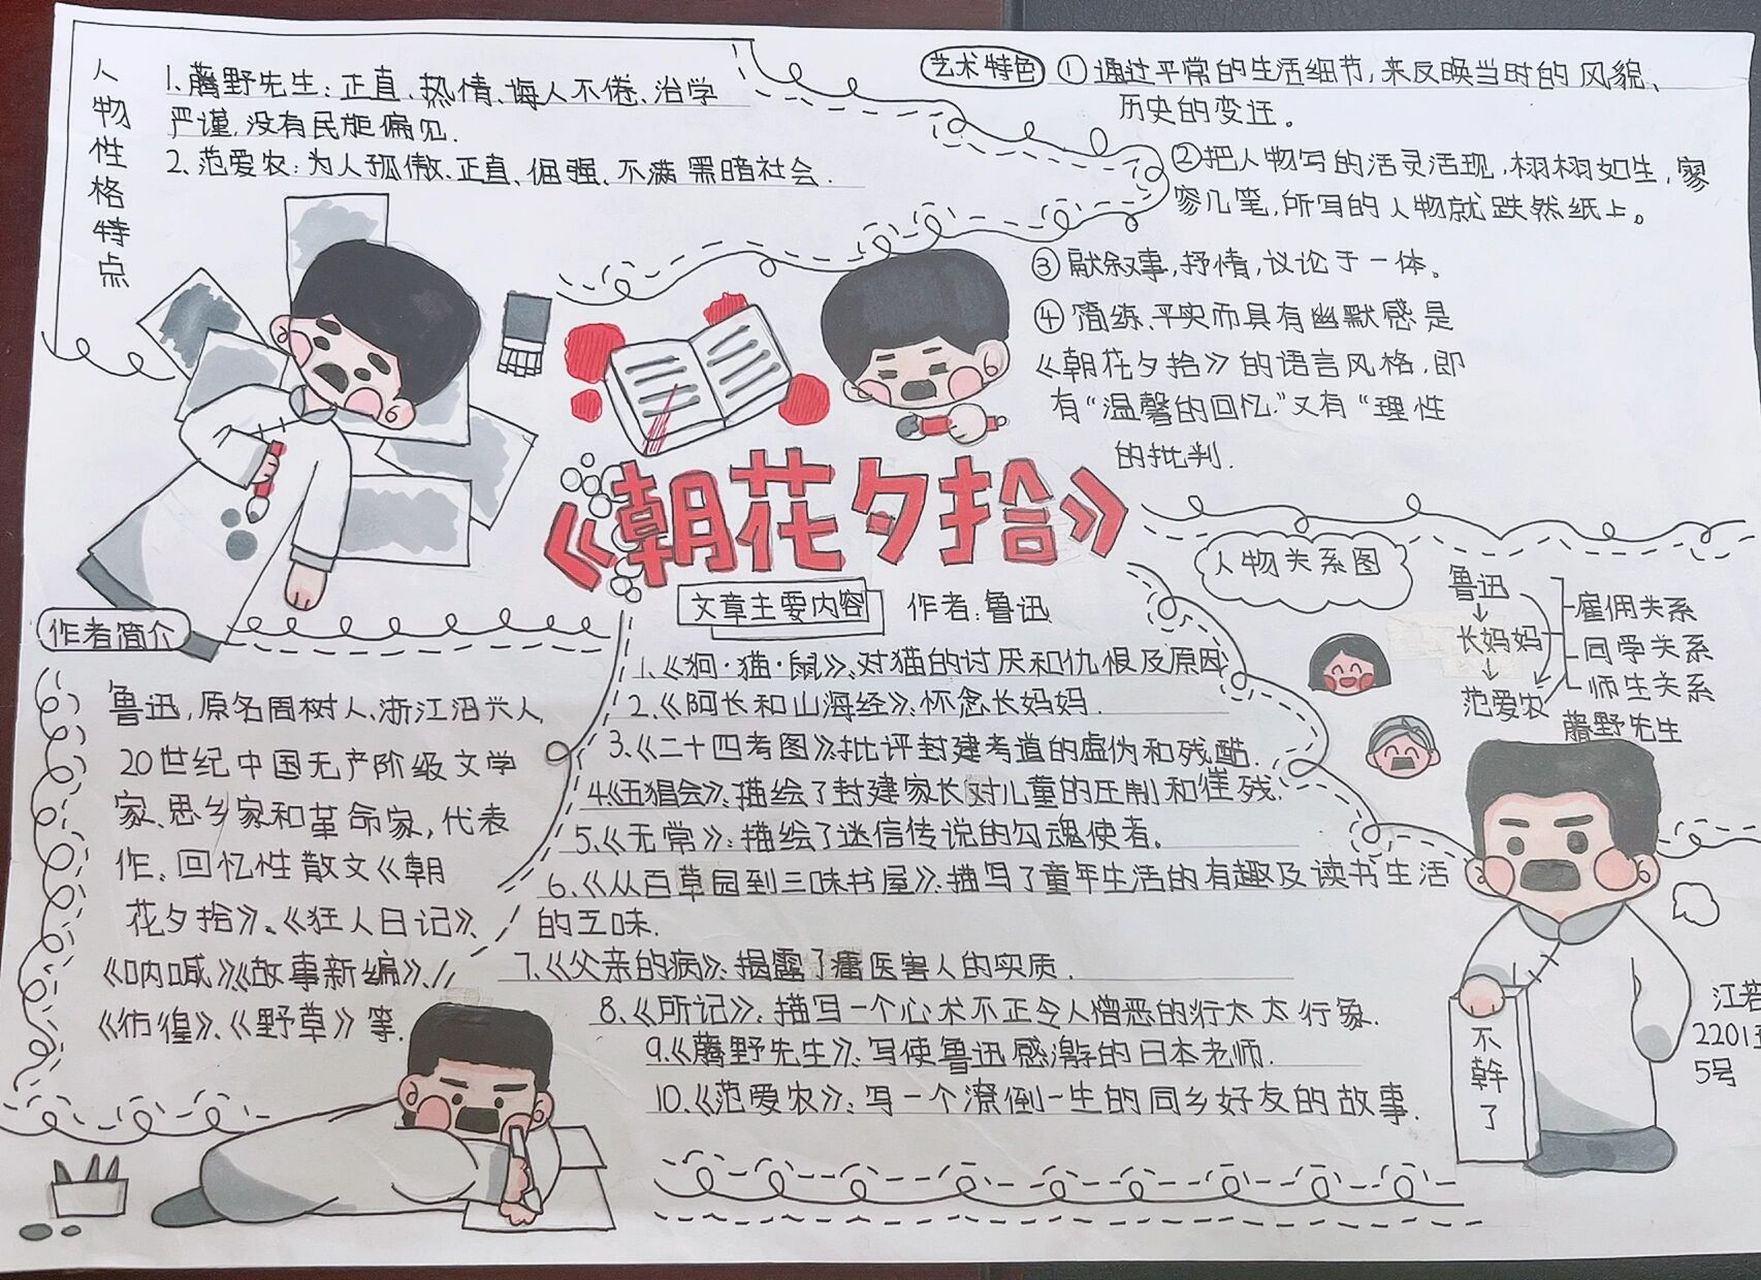 人物性格特点
1.藤野先生:正直、热情、诲人不倦、治学
严谨,没有民族偏见.
2.范爱农:为人孤傲、正直、倔强、不满黑暗社会.
艺术特色
①通过平常的生活细节,来反映当时的风貌、
历史的变迁。
②把人物写的活灵活现,栩栩如生,寥
寥几笔,所写的人物就跃然纸上。
③融叙事,抒情,议论于一体。
④简练、平实而具有幽默感是
《朝花夕拾》的语言风格,即
有“温馨的回忆”又有“理性
的批判.
《朝花夕拾》
文章主要内容
作者:鲁迅
1.《狗·猫·鼠》:对猫的讨厌和仇恨及原因
2.《阿长和山海经》:怀念长妈妈.
3.《二十四考图》:批评封建考道的虚伪和残酷.
4.《五猖会》:描绘了封建家长对儿童的压制和催残.
5.《无常》:描绘了迷信传说的勾魂使者。
6.《从百草园到三味书屋》:描写了童年生活的有趣及读书生活
的乏味.
7.《父亲的病》:揭露了庸医害人的实质.
8.《所记》:描写一个心术不正令人憎恶的衍太太行象.
9.《藤野先生》:写使鲁迅感激的日本老师.
10.《范爱农》:写一个潦倒一生的同乡好友的故事.
作者简介
鲁迅,原名周树人,浙江绍兴人,
20世纪中国无产阶级文学
家、思乡家和革命家,代表
作、回忆性散文《朝
花夕拾》、《狂人日记》、
《呐喊》《故事新编》、
《彷徨》、《野草》等.
人物关系图
鲁迅
↓
长妈妈
↓
范爱农
雇佣关系
同学关系
师生关系
藤野先生
不幹了
2201
5号